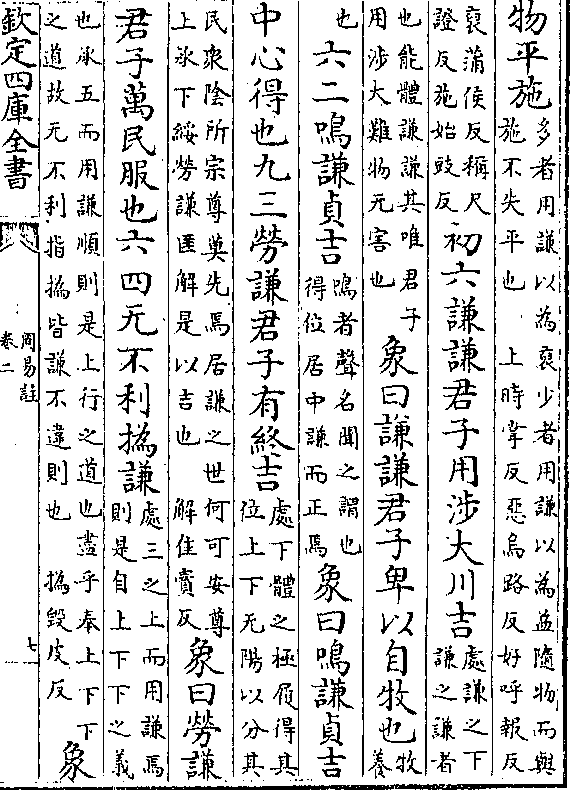 物平施
多者用謙以為裒少者用謙以為益隨物而與
施不失平也 上時掌反惡烏路反好呼報反
裒蒲侯反稱尺
證反施始豉反
初六謙謙君子用涉大川吉
處謙之下
謙之謙者
也能體謙謙其唯君子
用涉大難物无害也
象曰謙謙君子卑以自牧也
牧
養
也
六二鳴謙貞吉
鳴者聲名聞之謂也
得位居中謙而正焉
象曰鳴謙貞吉
中心得也九三勞謙君子有終吉
處下體之極履得其
位上下无陽以分其
民衆陰所宗尊莫先焉居謙之世何可安尊
上承下綏勞謙匪解是以吉也 解佳賣反
象曰勞謙
君子萬民服也六四无不利撝謙
處三之上而用謙焉
則是自上下下之義
也承五而用謙順則是上行之道也盡乎奉上下下
之道故无不利指撝皆謙不違則也 撝毀皮反
象
欽定四庫全書
周易註
卷二
七